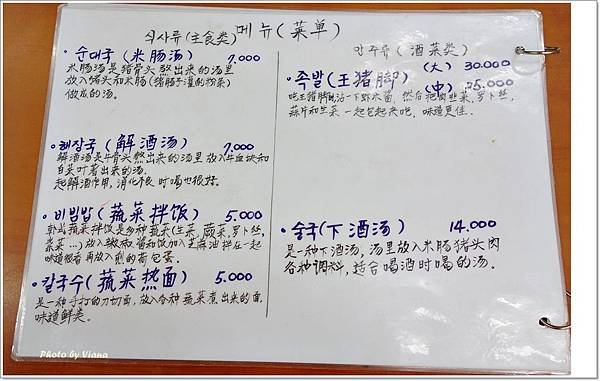 메뉴(菜单)
식사류(主食类)
·순대국(米肠汤) 7,000
米肠汤是猪骨头熬出来的汤里
放入猪头和米肠(猪肠子灌的粉条)
做成的汤。
·해장국(解酒汤) 7,000
解酒汤是牛骨头熬出来的汤里 放入牛血块和
白菜叶煮出来的汤。
起解酒作用,消化不良 时喝也很好。
·비빔밥(蔬菜拌饭) 5.000
韩式蔬菜拌饭是多种蔬菜(生菜,蕨菜,罗卜丝,
紫菜...)放入辣椒酱和饭加入芝麻油 拌在一起
再放入煎的荷包蛋。
·칼국수(蔬菜热面) 5.000
是一种手打的刀切面,放入各种蔬菜煮出来的面,
味道鲜美。
안주류(酒菜类)
(大) 30.000
·족발(王猪脚) (中) 25.000
吃王猪脚时沾一下虾水酱, 然后把肉韭菜,罗卜丝,
蒜片和生菜一起包起来吃, 味道更佳.
·술국(下酒汤) 14.000
是一种下酒汤,汤里放入米肠猪头肉
各种调料,适合喝酒时喝的汤。
Photo by Viana